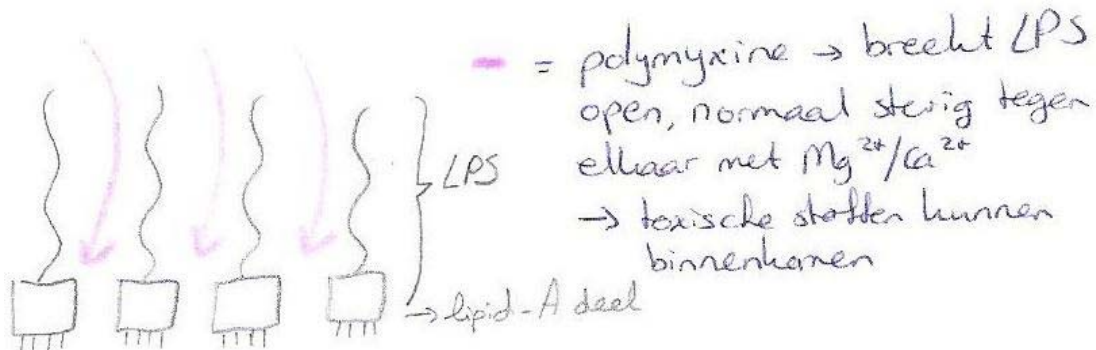 = polymyxine → breekt LPS
open, normaal stevig tegen
elkaar met Mg²⁺/Ca²⁺
→ toxische stoffen kunnen
binnenkomen
LPS
→ lipid-A deel